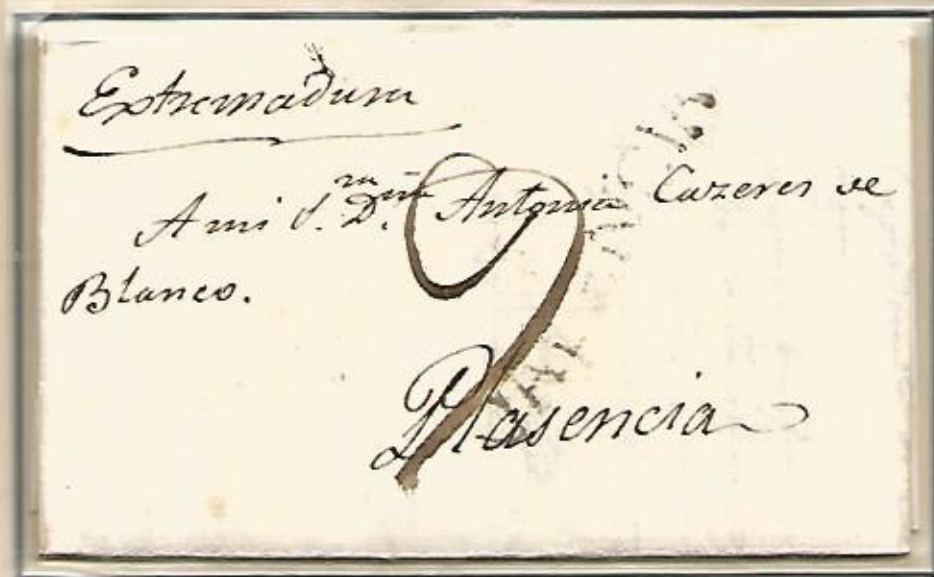 Extremadura
A mi S.ra D.ña Antonia Cazeres de
Blanco.
9
Plasencia